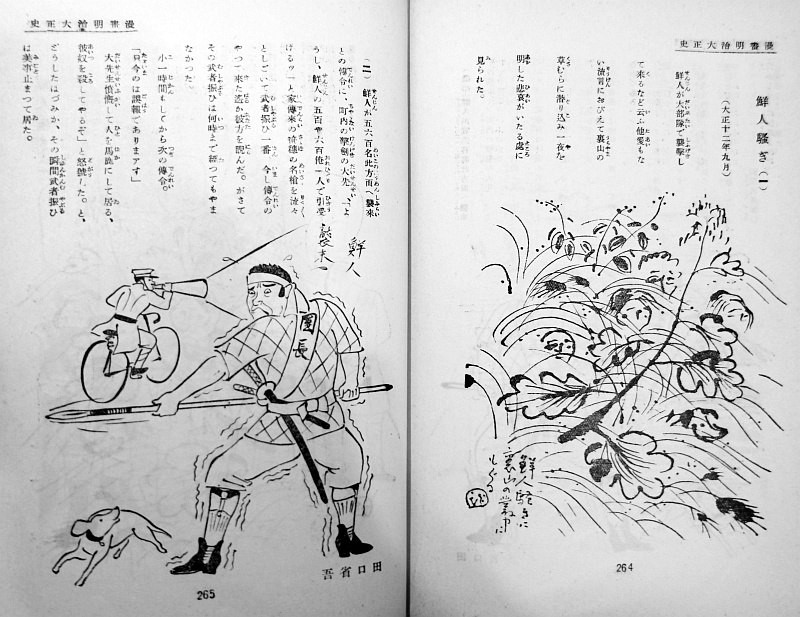 漫畫明治大正史
鮮人騒ぎ(一)
(大正十二年九月)
鮮人が大部隊で襲撃し
て來るなど云ふ他愛もな
い流言におびえて裏山の
草むらに潜り込み一夜を
明した悲哀がいたる處に
見られた。
鮮人騒ぎに
裏山の叢中に
もぐる
264
漫畫明治大正史
(二) 鮮人が五六百名此方面へ襲來
との傳令に、町内の撃劍の大先生「よ
うし、鮮人の五百や六百俺一人で引受
けるツ」と家傳來の の名槍を
としごいて武者振ひ一番、今し傳令の
やつて來た遙か彼方を睨んだ。がさて
その武者振ひは何時まで經つてもやま
なかつた。
小一時間もしてから次の傳令。
「只今のは誤報でありまアす」
大先生憤慨して人を馬鹿にして居る、
彼奴を殺してやるぞ」と怒號した。と、
どうしたはづみか、その瞬間武者振ひ
は美事止まつて居た。
鮮人
襲來
團長
田口省吾
265